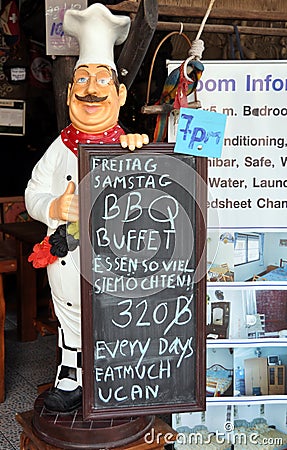 7pm
FREITAG
SAMSTAG
BBQ
BUFFET
ESSEN SO VIEL
SIEMOCHTEN!
320฿
EVERY DAYS
EATMUCH
UCAN
oom Infor
5 m. Bedroom
nditioning,
nibar, Safe, W
Water, Laun
edsheet Chan
dreamstime.com